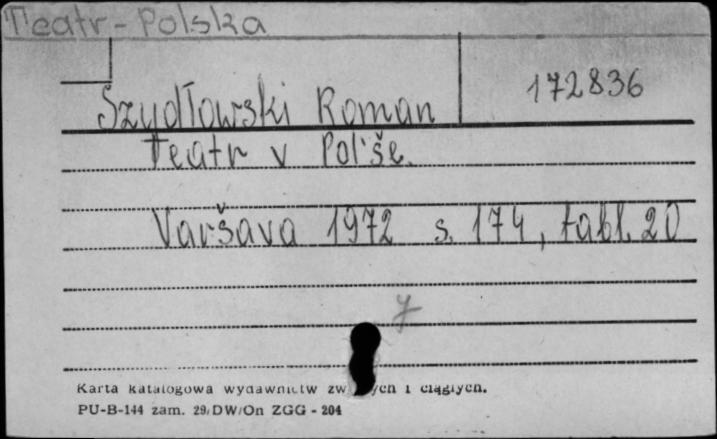 Teatr - Polska
172836
Szydłowski Roman
Teatr v Pol'še.
Varšava 1972 s. 174, tabl. 20
7
Karta katalogowa wydawnictw ciągłych.
PU-B-144 zam. 29/DW/On ZGG - 204